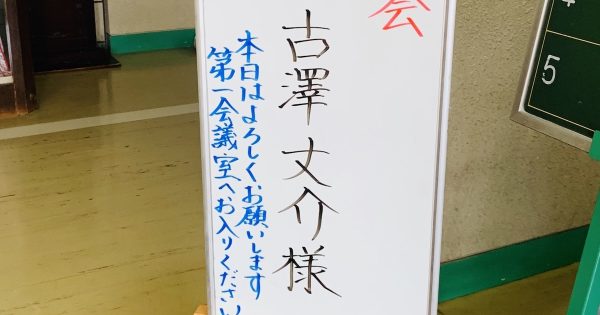 会
古澤 丈介様
本日はよろしくお願いします
第一会議室へお入りください
5